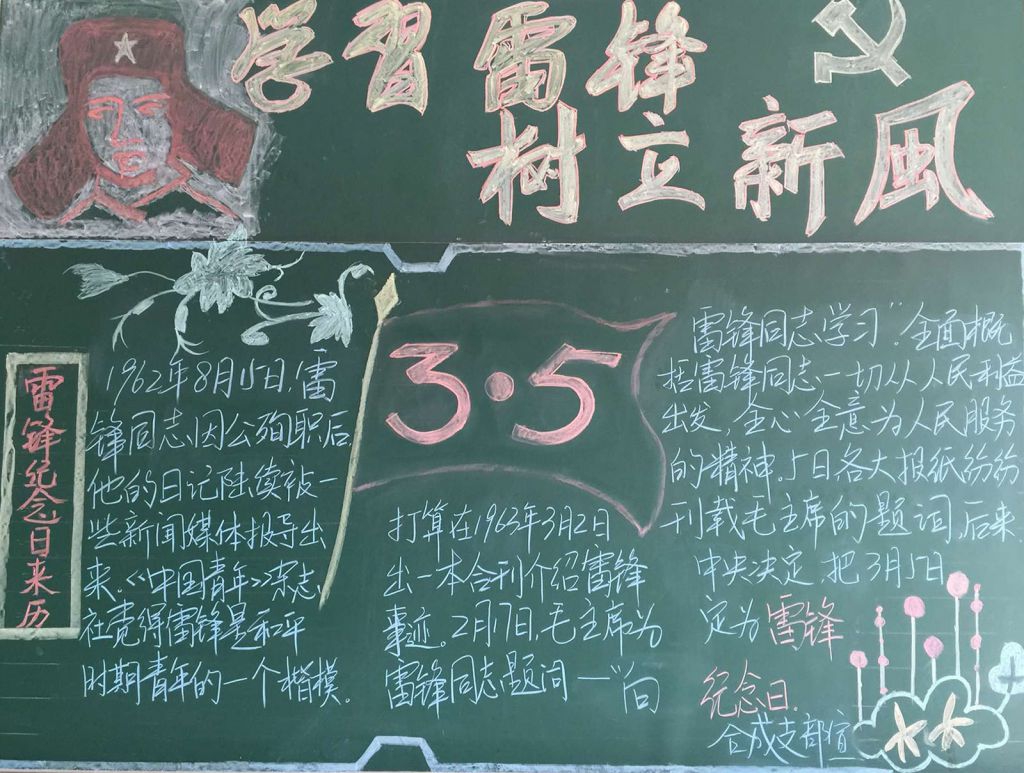 学習雷锋
树立新風
雷锋纪念日来历
1962年8月15日,雷
锋同志因公殉职后
他的日记陆续被一
些新闻媒体报导出
来.《中国青年》杂志
社觉得雷锋是和平
时期青年的一个楷模.
3·5
打算在1963年3月2日
出一本合刊介绍雷锋
事迹.2月17日,毛主席为
雷锋同志题词一“向
雷锋同志学习”全面概
括雷锋同志一切从人民利益
出发,全心全意为人民服务
的精神.5日各大报纸纷纷
刊载毛主席的题词,后来
中央决定,把3月5日
定为雷锋
纪念日.
合成支部宣